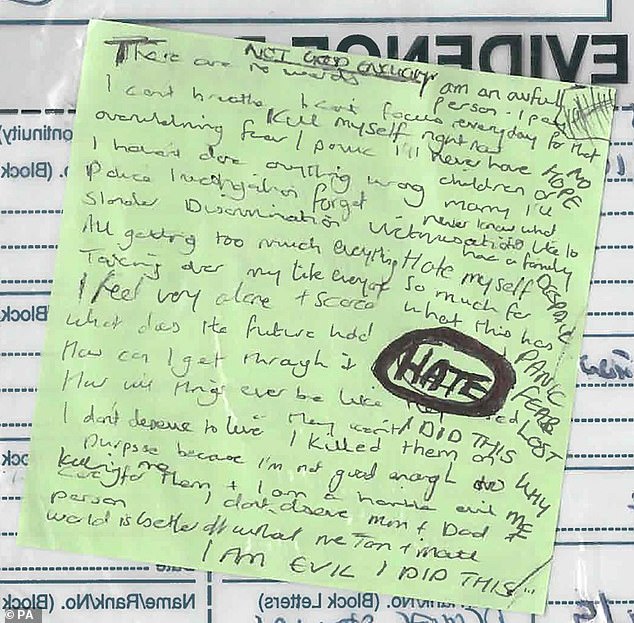 EVIDENCE
NOT GOOD ENOUGH
There are no words
I am an awful person - I pay everyday for that
I can't breathe I can't focus
Kill myself right now
overwhelming fear / panic
I'll never have children or marry
NO HOPE
I haven't done anything wrong
I'll never know what it's like to have a family
Police investigation forget
Slander Discrimination Victimisation
DESPAIR
All getting too much everything
Hate myself so much for what this has
Taking over my life
I feel very alone + scared
PANIC
FEAR
LOST
What does the future hold
HATE
How can I get through it
How will things ever be like they used
I DID THIS
WHY ME
I don't deserve to live
I killed them on purpose because I'm not good enough to care for them + I am a horrible evil person
killing me
I don't deserve mum + Dad
world is better off without me
I AM EVIL I DID THIS
(Continuity)
(Block
Date
Name/Rank/No. (Block Letters)
Name/Rank/No. (Block
PA